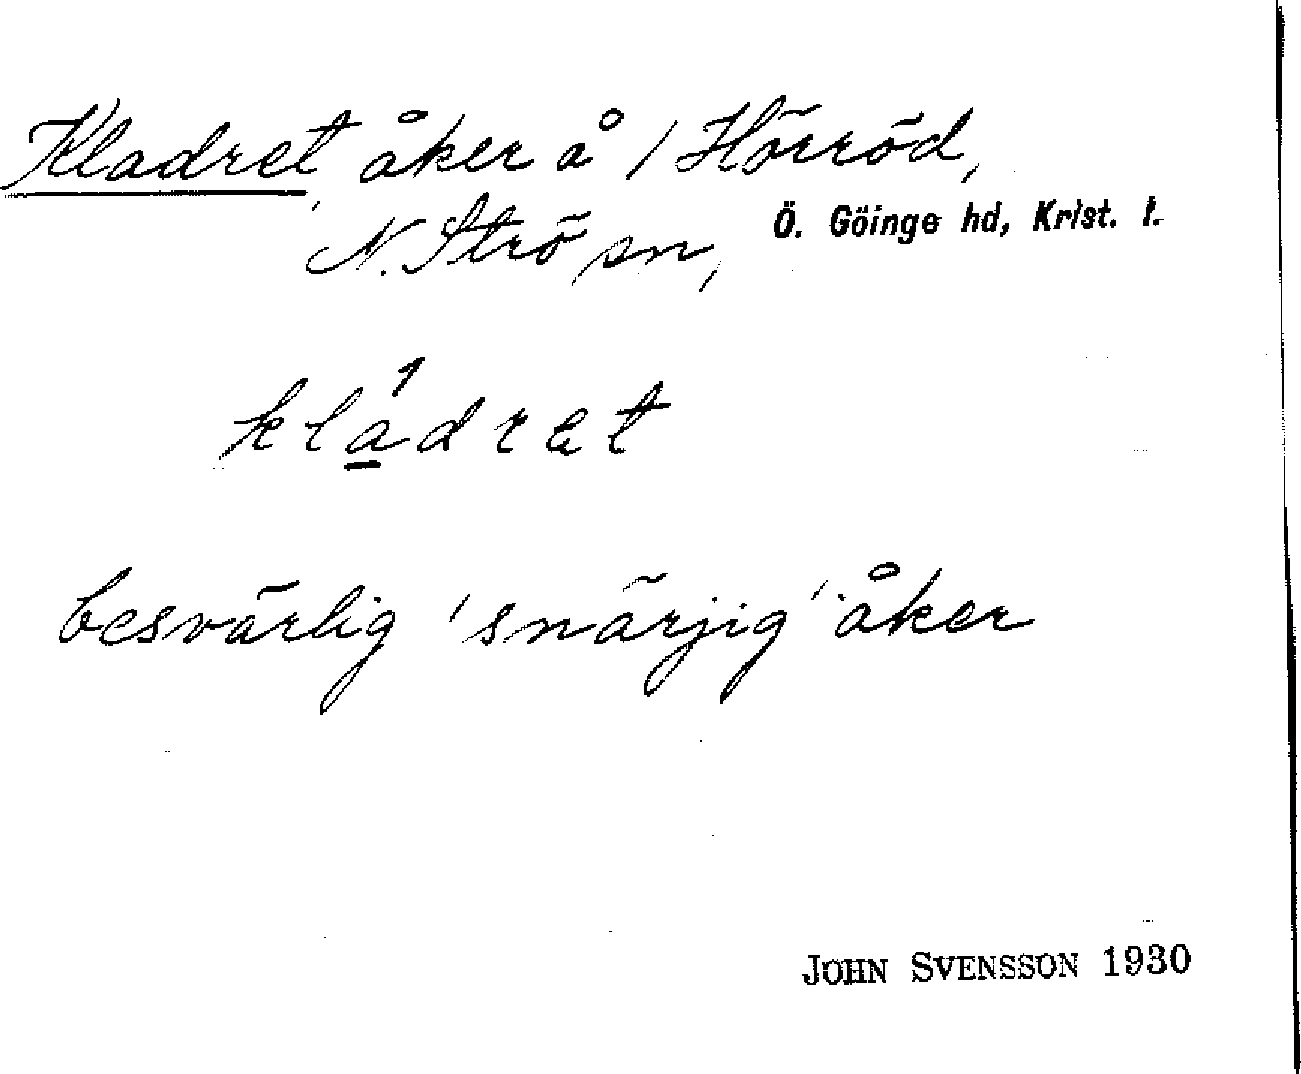 Kladret, åker å / Hörröd,
N. Strö sn, Ö. Göinge hd, Krist. l.
kládret
besvärlig 'snärjig' åker
JOHN SVENSSON 1930